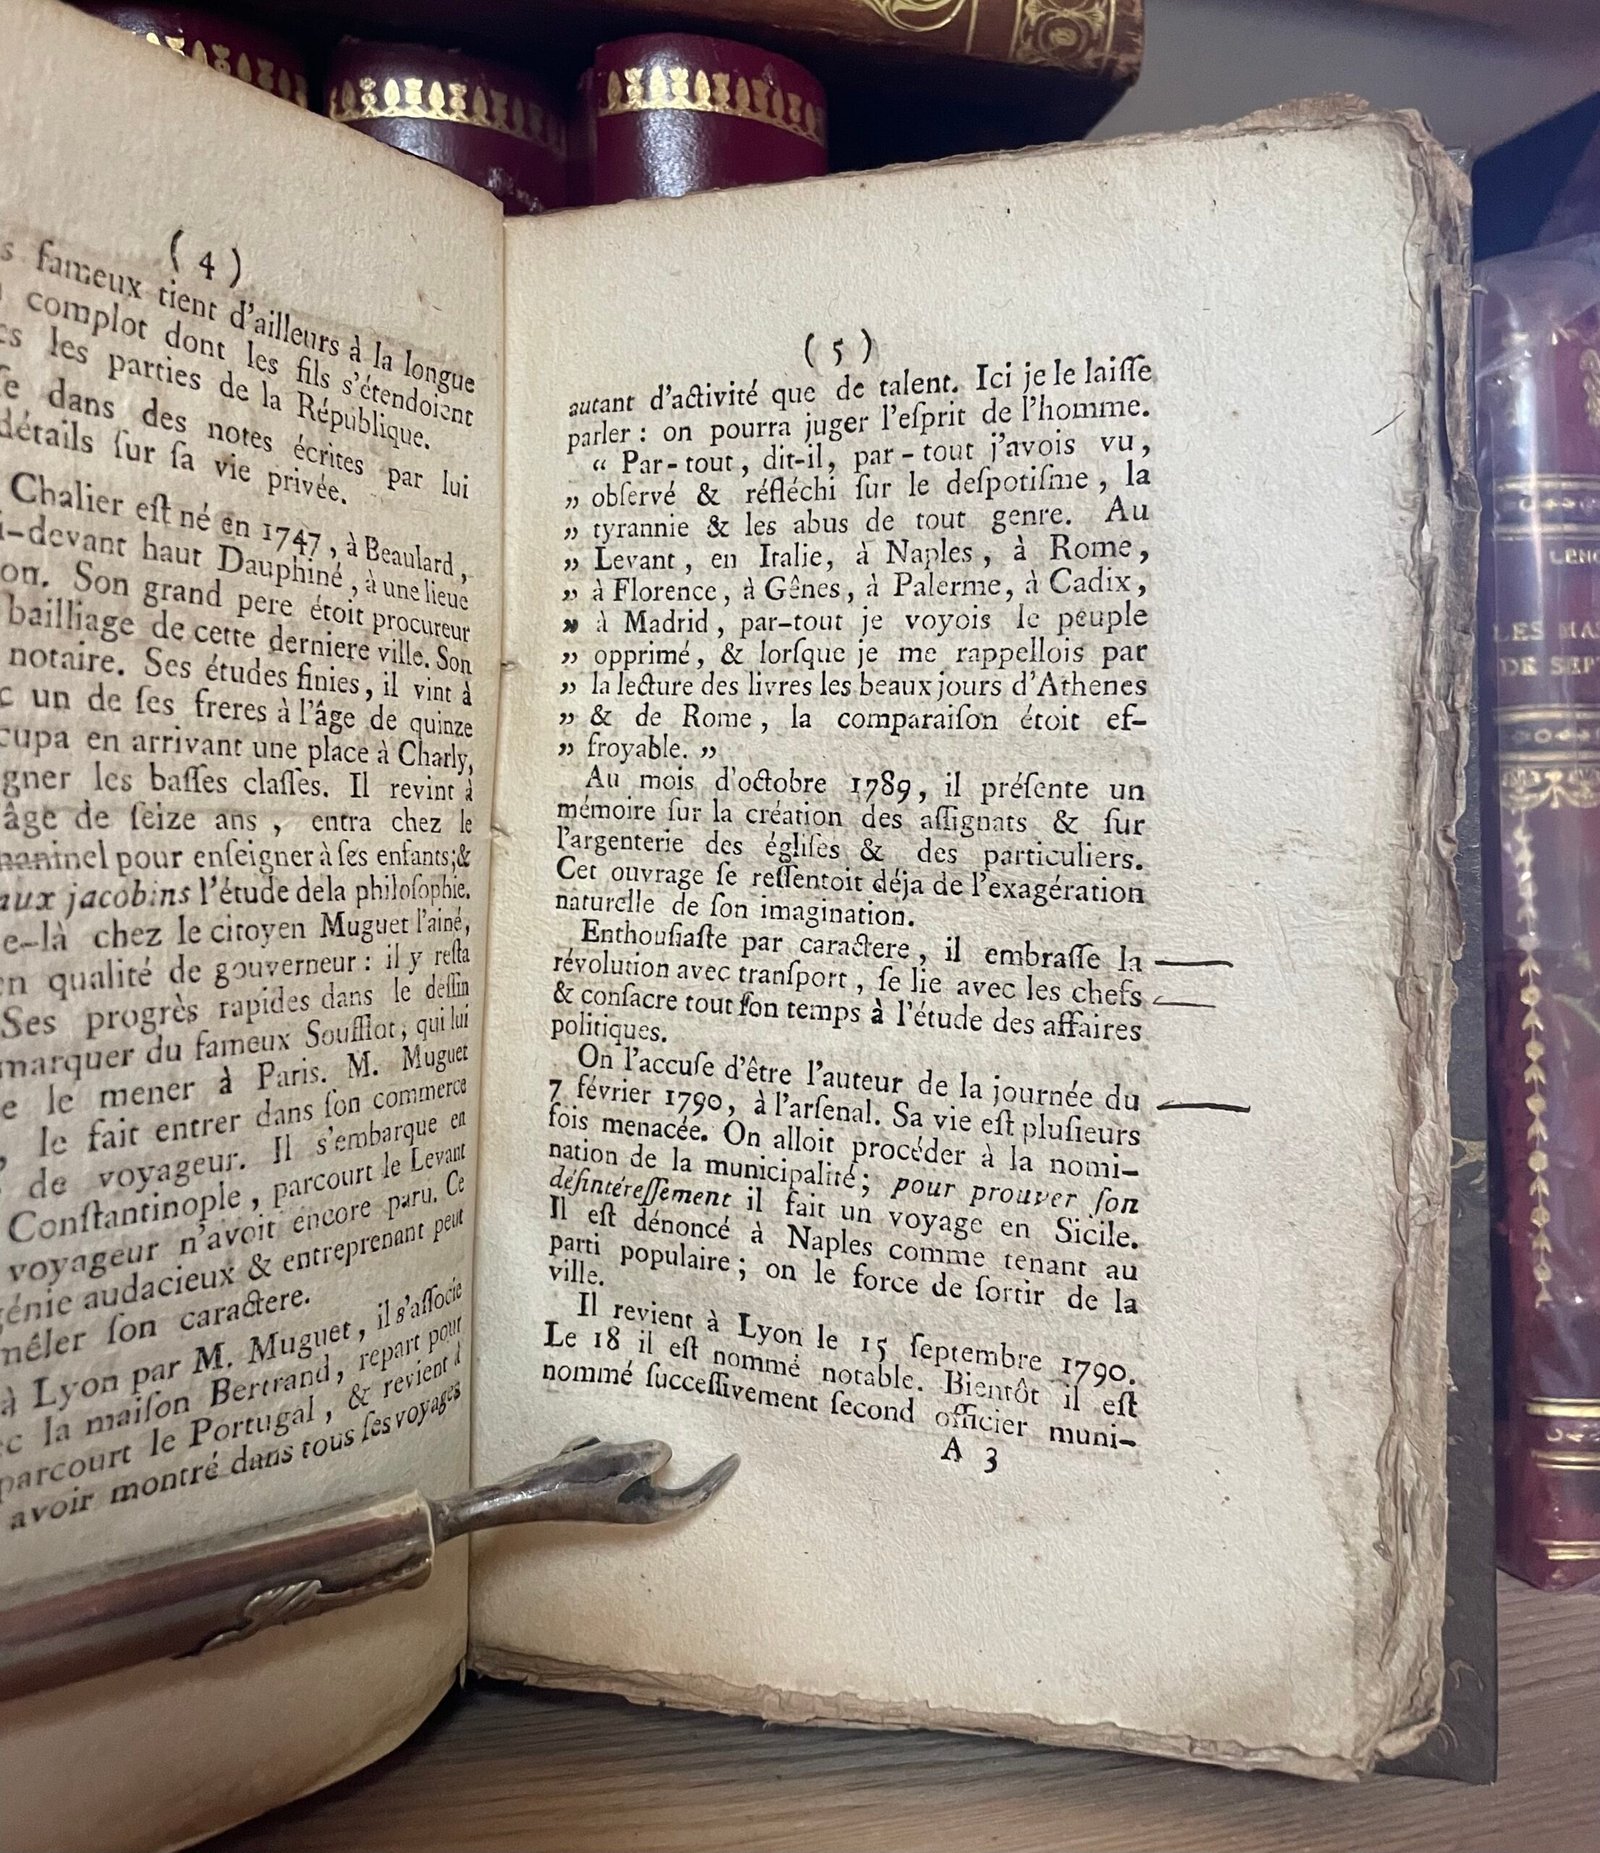 ( 4 )
fameux tient d'ailleurs à la longue
complot dont les fils s'étendoient
les parties de la République.
dans des notes écrites par lui
détails ſur ſa vie privée.
Chalier eſt né en 1747, à Beaulard,
i-devant haut Dauphiné, à une lieue
on. Son grand pere étoit procureur
bailliage de cette derniere ville. Son
notaire. Ses études finies, il vint à
c un de ſes freres à l'âge de quinze
cupa en arrivant une place à Charly,
gner les baſſes claſſes. Il revint à
âge de ſeize ans, entra chez le
pour enſeigner à ſes enfants; &
aux jacobins l'étude dela philoſophie.
e-là chez le citoyen Muguet l'ainé,
en qualité de gouverneur : il y reſta
Ses progrès rapides dans le deſſin
marquer du fameux Soufflot, qui lui
e le mener à Paris. M. Muguet
le fait entrer dans ſon commerce
de voyageur. Il s'embarque en
Conſtantinople, parcourt le Levant
voyageur n'avoit encore paru. Ce
génie audacieux & entreprenant peut
mêler ſon caractere.
à Lyon par M. Muguet, il s'aſſocie
c la maiſon Bertrand, repart pour
parcourt le Portugal, & revient à
avoir montré dans tous ſes voyages
( 5 )
autant d'activité que de talent. Ici je le laiſſe
parler : on pourra juger l'eſprit de l'homme.
“ Par-tout, dit-il, par-tout j'avois vu,
„ obſervé & réfléchi ſur le deſpotiſme, la
„ tyrannie & les abus de tout genre. Au
„ Levant, en Italie, à Naples, à Rome,
„ à Florence, à Gênes, à Palerme, à Cadix,
„ à Madrid, par-tout je voyois le peuple
„ opprimé, & lorſque je me rappellois par
„ la lecture des livres les beaux jours d'Athenes
„ & de Rome, la comparaiſon étoit ef-
„ froyable. „
Au mois d'octobre 1789, il préſente un
mémoire ſur la création des aſſignats & ſur
l'argenterie des égliſes & des particuliers.
Cet ouvrage ſe reſſentoit déja de l'exagération
naturelle de ſon imagination.
Enthouſiaſte par caractere, il embraſſe la
révolution avec tranſport, ſe lie avec les chefs
& conſacre tout ſon temps à l'étude des affaires
politiques.
On l'accuſe d'être l'auteur de la journée du
7 février 1790, à l'arſenal. Sa vie eſt pluſieurs
fois menacée. On alloit procéder à la nomi-
nation de la municipalité; pour prouver ſon
déſintéreſſement il fait un voyage en Sicile.
Il eſt dénoncé à Naples comme tenant au
parti populaire; on le force de ſortir de la
ville.
Il revient à Lyon le 15 ſeptembre 1790.
Le 18 il eſt nommé notable. Bientôt il eſt
nommé ſucceſſivement ſecond officier muni-
A 3